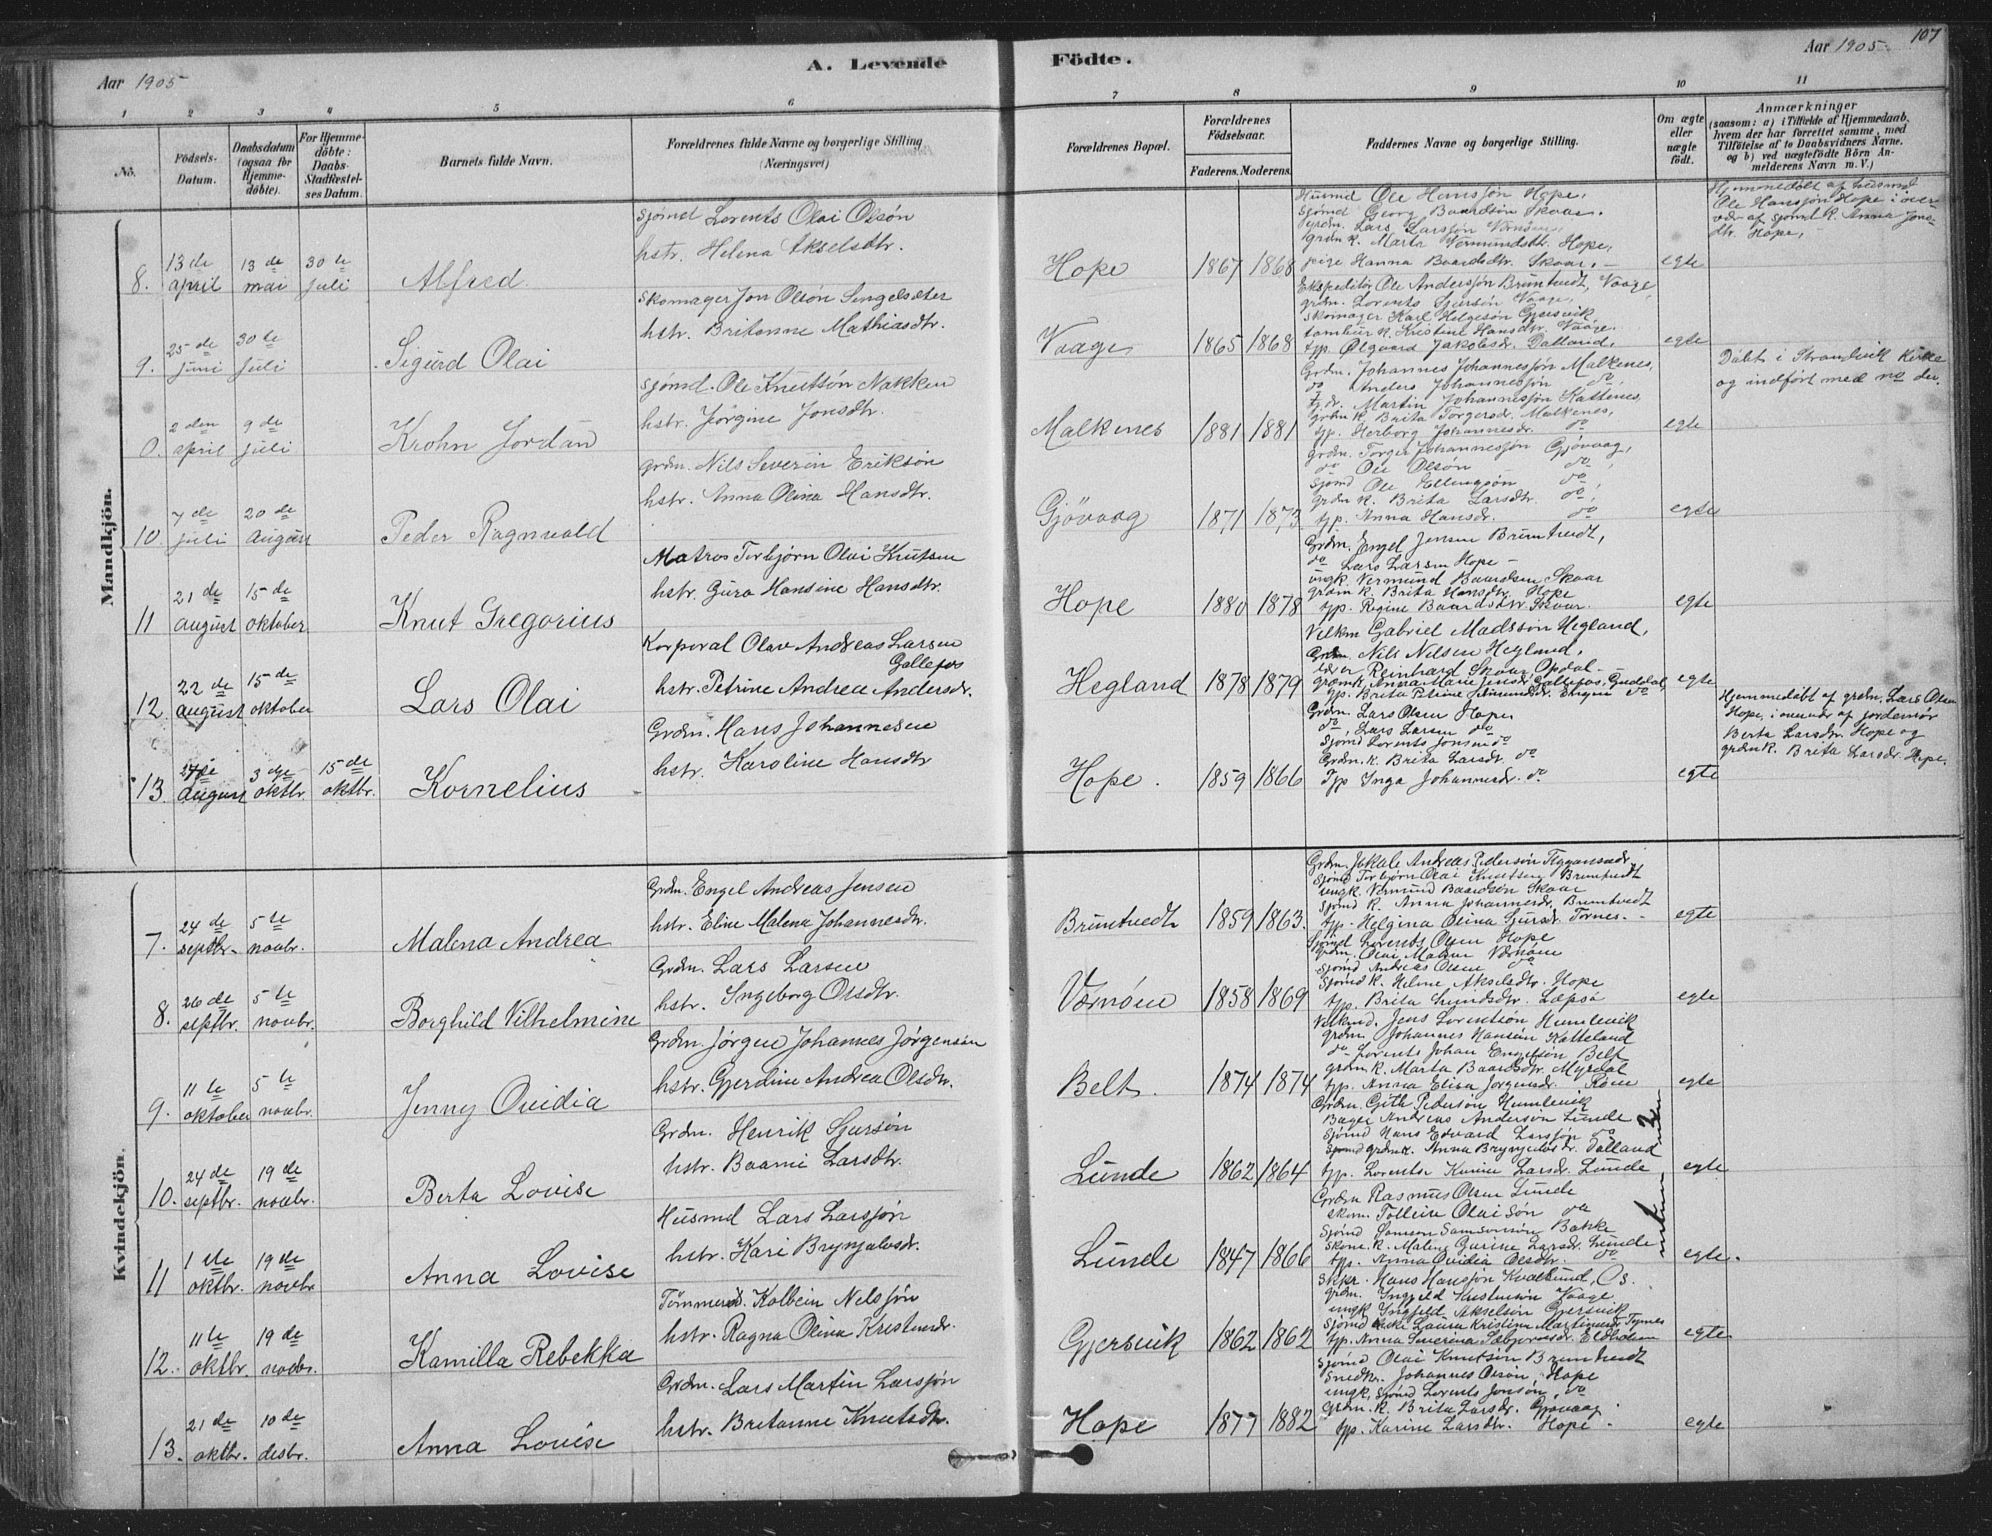 Aar 1905
A. Levende Födte.
Aar 1905
107
1 2 3 4 5 6 7 8 9 10 11
No.
Födsels-Datum.
Daabsdatum (ogsaa for Hjemme-döbte).
For Hjemme-döbte: Daabs-Stadfæstel-ses Datum.
Barnets fulde Navn.
Forældrenes fulde Navne og borgerlige Stilling
(Næringsvei)
Forældrenes Bopæl.
Forældrenes Födselsaar.
Faderens. Moderens.
Faddernes Navne og borgerlige Stilling.
Om ægte eller uægte födt.
Anmærkninger
(saasom: a) i Tilfælde af Hjemmedaab, hvem der har forrettet samme, med Tilföielse af to Daabsvidners Navne. og b) ved uægtefödte Börn An-melderens Navn m. V.)
Mandkjön.
8. 13 de april 13 de mai 30 te juli
Alfred
Sjømd Lorents Olai Olsön
hstr. Helena Akselsdtr.
Hope 1867 1868
Husmd Ole Hansjön Hope,
Sjömd Georg Baardsön Skaar.
Lars Larsjön Værnöen
grdm k. Marta Vermundsdtr. Hope,
pige Hanna Baardsdtr. Skaar.
egte
Hjemmedöbt af husmd
Ole Hansjön Hope i over-
vær af sjömd k. Anna Jons-
dtr. Hope,
9. 25 de juni 30 te juli
Sigurd Olai
Skomager Jon Olsön Singelsæter
hstr. Britanne Mathiasdtr.
Vaage 1865 1868
Ekspeditör Ole Andersjön Brüntvedt, Vaage,
grdm. Lorents Sjursön Vaage,
Skomager Karl Helgesön Gjersvik,
tambur k. Kristine Hansdtr. Vaage.
tjp. Ølgaard Jakobsdr. Dalland,
egte
0. 2 den april 9 de juli
Krohn Jordan
Sjömd. Ole Knutsön Nakken
hstr. Jörgine Jonsdtr.
Malkenes 1881 1881
Grdm. Johannes Johannesjön Malkenes,
do Anders Johannesjön do
Martin Johannesjön Kattenes,
grdm k. Brita Torgersdr. Malkenes,
tjp. Herborg Johannesdr. do
egte
Döbt i Strandvik Kirke
og indfört med no der.
10. 7 de juli 20 de August
Peder Ragnvald
grdm. Nils Severin Eriksön
hstr. Anna Olina Hansdtr.
Gjövaag 1871 1873
grdm. Torger Johannesjön Gjövaag,
do Ole Olsön do
Sjömd Ole Ellingsön do
grdm k. Brita Larsdtr. do
tjp. Anna Hansdr. do
egte
11 21 de august 15 de oktober
Knut Gregorius
Matros Torbjörn Olai Knutsen
hstr. Guro Hansine Hansdtr.
Hope 1880 1878
Grdm. Engel Jensen Brüntvedt,
do Lars Larsen Hope
ungk. Vermund Baardsen Skaar
grdm k. Brita Hansdtr. Hope
tjp. Regine Baardsdtr. Skaar.
egte
12. 22 de august 15 de oktober
Lars Olai
Korporal Olav Andreas Larsen
Gallefos
hstr. Petrine Andrea Andersdr.
Hegland 1878 1879
Velkm Gabriel Madssön Hegland,
Grdm Nils Nilsen Hegland,
lærer Reinhard Skaar Opdal
Anna Marie Jensdr. Gallefos,
tjp. Brita Petrine do
egte
13. august 3 dje oktbr. 15 de oktbr.
Kornelius
Grdm. Hans Johannesen
hstr. Karoline Hansdtr
Hope. 1859 1866
Grdm. Lars Olsen Hope
do, Lars Larsen do
Sjömd Lorents Jonsen do
Grdm. k. Brita Larsdt. do
Tjp Inga Johannesdr. do
egte
Hjemmedöbt af grdm. Lars Olsen
Hope, i overvær af jordemor
Berta Larsdtr. Hope og
grdm k. Brita Larsdr. Hope.
Kvindekjön.
7. 24 de septbr. 5 te novbr.
Malena Andrea
Grdm. Engel Andreas Jensen
hstr. Eline Malena Johannesdtr.
Brüntvedt 1859 1863.
Grdm. Jakob Andreas Pedersön
Sjömd Torbjörn Olai Knudsen Brüntvedt
ungk. Vermund Baardsön Skaar
Sjömd k. Anna Johannesdr. Brüntvedt
tjp. Helgina Olina Sjursdr. Tornes.
egte
8. 26 de septbr. 5 te novbr.
Borghild Vilhelmine
Grdm. Lars Larsen
hstr. Ingeborg Olsdtr.
Værnöen 1858 1869
Sjömd Lorents Olsen Hope
grdm. Olai Værnöen
Sjömd Andreas Olsen do
Sjömd k. Helene Akselsdtr. Hope
tjp. Brita Lepsö
egte
9. 11 te oktober 5 te novbr.
Jenny Ovidia
Grdm. Jörgen Johannes Jörgensön
hstr. Gjerdine Andrea Olsdtr.
Belt. 1874 1874
Velkmd. Jens Lorentsön Humlevik
grdm. Johannes Hansön Katteland
do Lorents Johan Engelsön Belt
grdm k. Marta Baardsdtr. Myrdal
tjp. Anna Elisa Jörgensdr. Röen
egte
10. 24 de septbr. 19 de novbr.
Berta Lovise
Grdm. Henrik Sjursön
hstr. Baarni Larsdtr.
Lunde 1862 1864
Grdm. Gitle Pedersön Humlevik
Andreas Andersön Lunde
Sjömd Hans Edvard Larsjön do
Anna Brynjulvsdr. Dalland
tjp. Lorentse Karine Larsdr. Lunde
egte
11 1 ste oktbr. 19 de novbr
Anna Lovise
Husmd Lars Larsjön
hstr. Kari Brynjulvsdr.
Lunde 1847 1866
Grdm Rasmus Olsen Lunde
skom. Tollein Olai Søn do
Sjömd Samson Samsonsön Bakke
Skom. k. Malena Gurine Larsdr. Lunde
tjp. Anna Ovidia Olsdtr. do
egte.
12. 11 te oktbr. 19 de novbr.
Kamilla Rebekka
Tömmermd. Kolbein Nilsjön
hstr. Ragna Olina Kristensdr.
Gjersvik 1862 1862
Skpr. Hans Hansjön Kvalsund, Os.
grdm. Ingjeld Kristensön Vaage
ungk Ingjeld Akselsön Gjersvik
Sjömd Laura Kristine Tornes
tjp. Anna Severina Eldholm
egte
13. 21 de oktbr. 10 de desbr.
Anna Lovise
Grdm. Lars Martin Larsjön
hstr. Britanne Knutsdtr.
Hope 1877 1882
Sjömd Olai Knutsön Brüntvedt
Snedkr. Johannes Olsön, Hope
ungk. Sjömd Lorents Jonsön, do
Grdm. k. Brita Larsdr. Gjövaag
tjp. Karine Larsdtr. Hope
egte